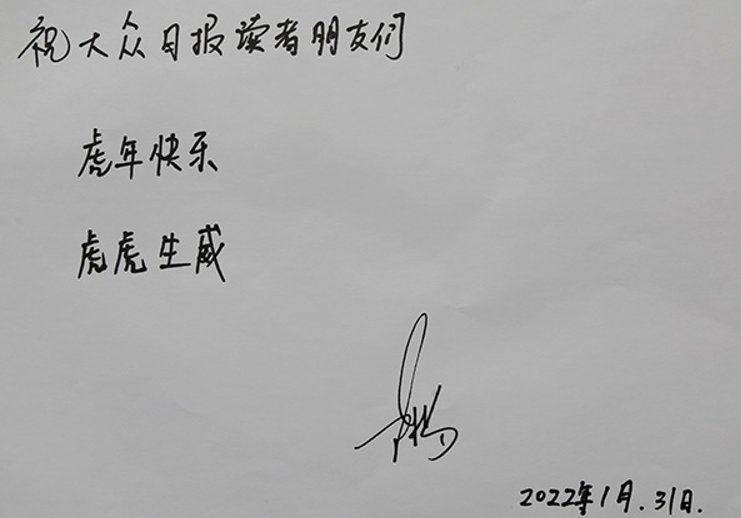 祝大众日报读者朋友们
虎年快乐
虎虎生威
2022年1月.31日.